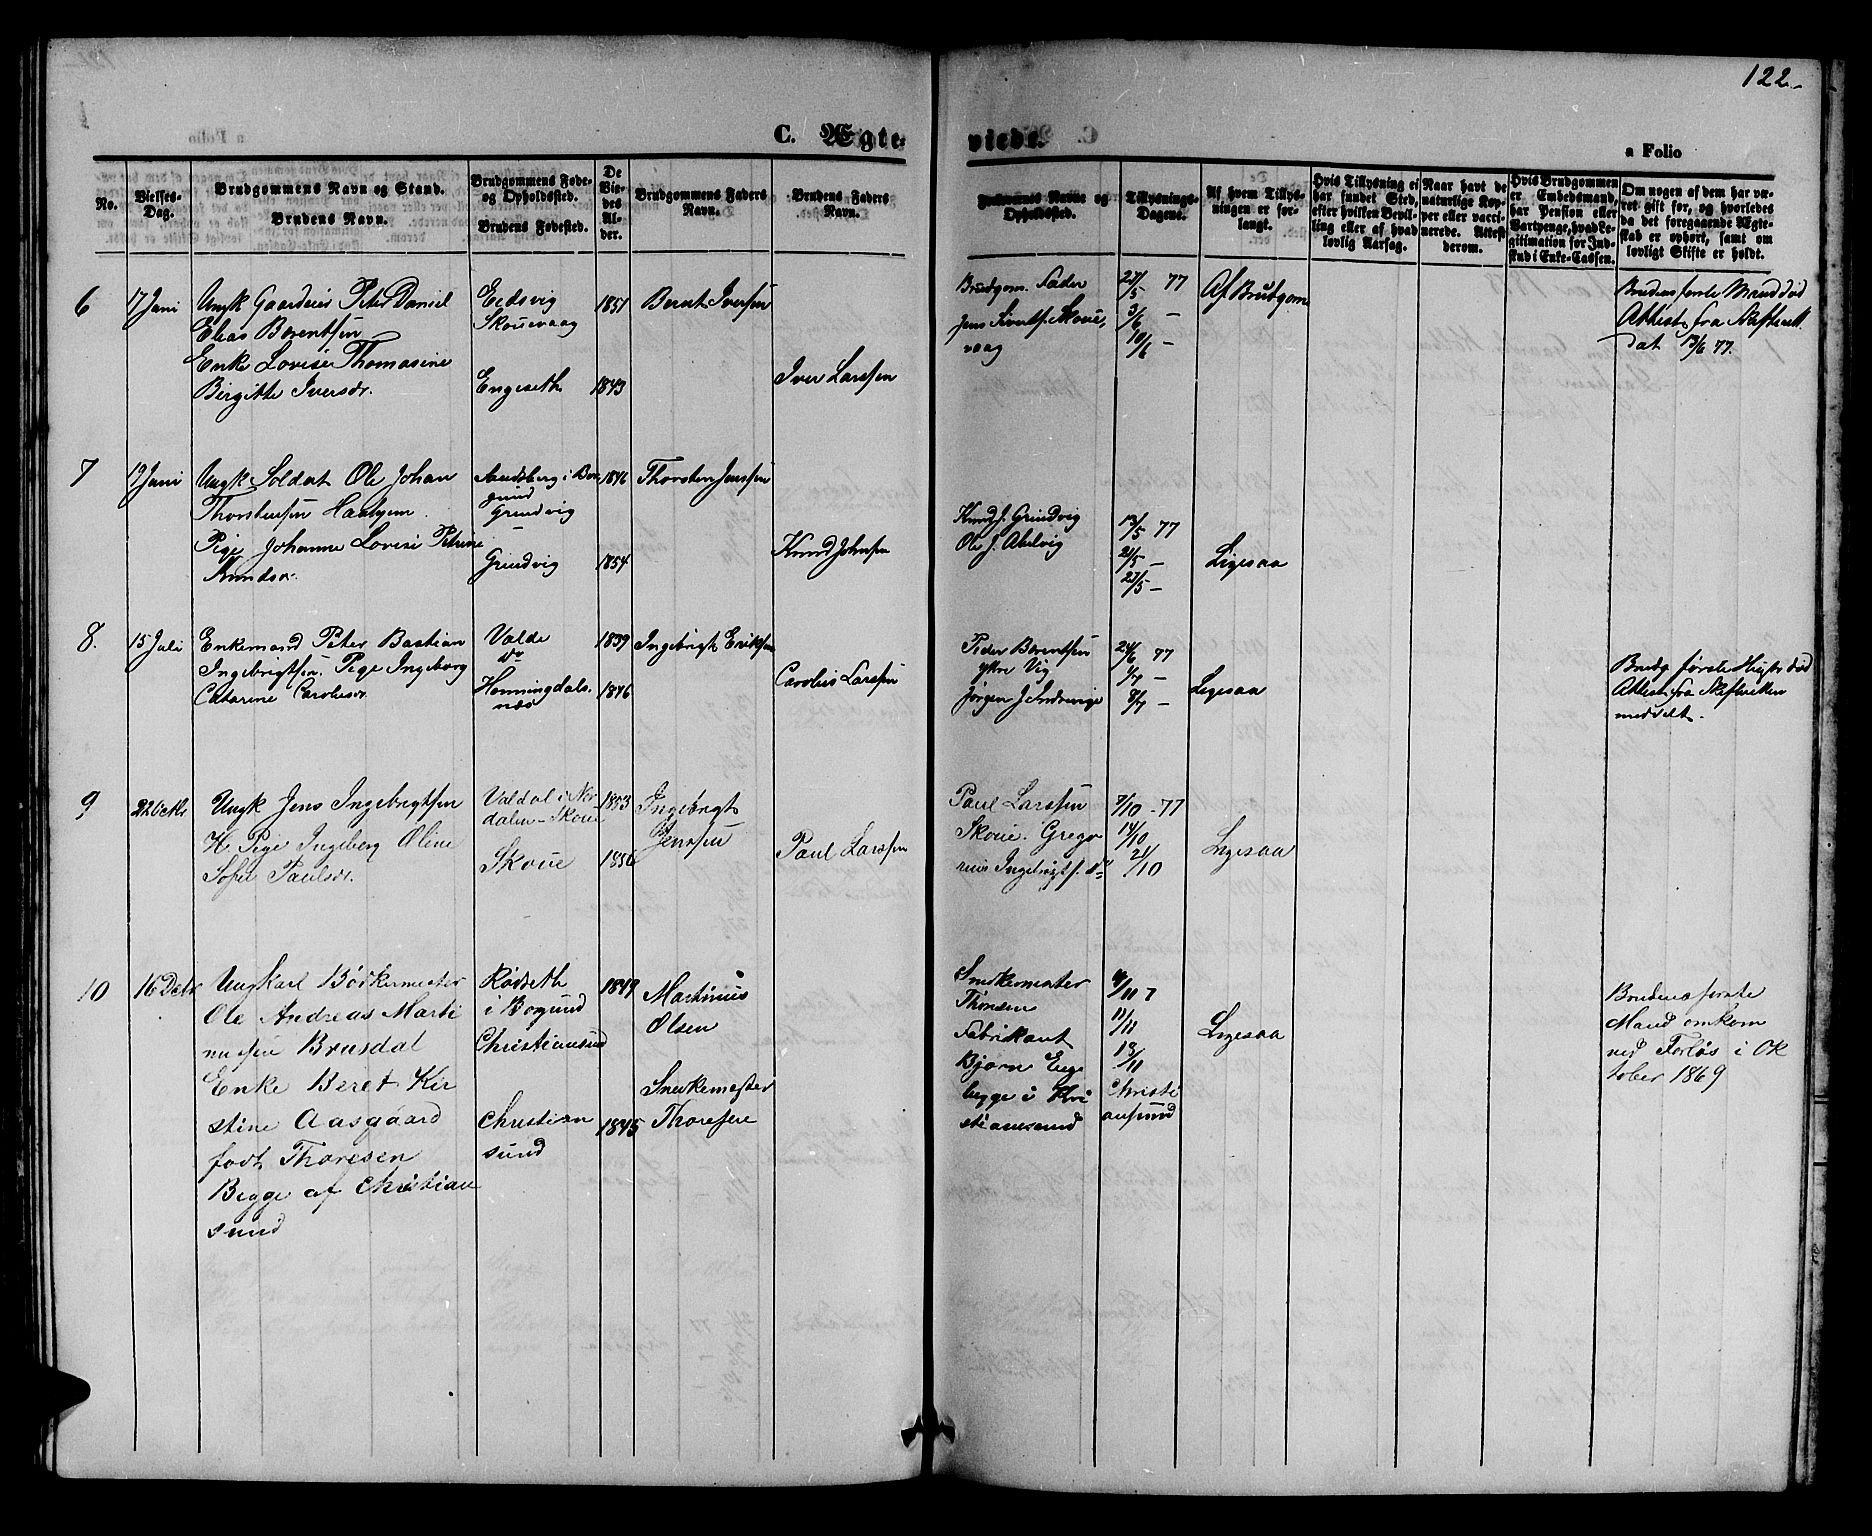 122.
C. Ægte-
viede.
a Folio
No.
Vielses-
Dag.
Brudgommens Navn og Stand.
Brudens Navn.
Brudgommens Føde-
og Opholdssted.
Brudens Fødested.
De
Vie-
des
Al-
der.
Brudgommens Faders
Navn.
Brudens Faders
Navn.
Forlovernes Navne og
Opholdssted.
Tillysnings-
Dagene.
Af hvem Tillys-
ningen er for-
langt.
Hvis Tillysning ei
har fundet Sted,
efter hvilken Bevil-
ling eller af hvad
lovlig Aarsag.
Naar havt de
naturlige Kop-
per eller vacci-
nerede. Attest
derom.
Hvis Brudgommen
er Embedsmand,
har Pension eller
Vartpenge, hvad Le-
gitimation for Ind-
skud i Enke-Cassen.
Om nogen af dem har væ-
ret gift før, og hvorledes
da det foregaaende Ægte-
skab er ophørt, samt om
lovligt Skifte er holdt.
6
17 Juni
Ungk Gaardeier Peter Daniel
Elias Berentsen
Enke Lovise Thomasine
Birgitte Iversdr.
Eidsvig
Skouevaag
Engeseth
1851
1843
Bernt Iversen
Iver Larssen
Brudgom. Fader
Jens Sivertss. Skoue,
vaag
27/5 77
3/6 -
10/6 -
Af Brudgom
Brudens første Mand død
Attest fra Skifterett
dat 13/6 77.
7
19 Juni
Ungk Soldat Ole Johan
Thorstensen
Pige Johanne Lovise Petrine
Knudsdr.
i Bor
gund
Grindvig
Grindvig
1846
1854
Thorsten Jenssen
Knud Johnsen
Knud J. Grindvig
Ole J.
13/5 77
21/5 -
27/5 -
Ligesaa
8.
15 Juli
Enkemand Peter Bastian
Ingebrigtsen. Pige Ingeborg
Catarine Carolusdr.
Valde
do
Honningdals,
næs
1839
1846
Ingebrigt Eriksen
Carolus Larssen
Peder Berentsen
ytre Vig
Jørgen J
24/6 77
1/7 -
8/7 -
Ligesaa
Brudg første Hustr død
Attest fra Skifteretten
meddelt.
9
22 Octbr
Ungk Jens Ingebrigtsen
H. Pige Ingeborg Oline
Sofie Paulsdr.
Valdal i Nor
dalen - Skoue
Skoue
1853
1856
Ingebrigt
Jenssen
Paul Larssen
Paul Larssen
Skoue. Grego
rius Ingebrigts. do
7/10 - 77
14/10
21/10
Ligesaa
10
16 Decbr
Ungkarl Bødkermester
Ole Andreas Marti
nussen Brusdal
Enke Beret Kir
stine Aasgaard
født Thoresen
Begge af Christian
sund
Rødseth
i Borgund
Christiansund
Christian
sund
1849
1845
Martinus
Olsen
Snedkemester
Thoresen
Snedkermester
Thoresen
Fabrikant
Bjørn Enge
begge i Kri
stiansund
4/11 7
11/11
18/11
Christi
ansund
Ligesaa
Brudens første
Mand omkom
ved Forlis i Ok
tober 1869